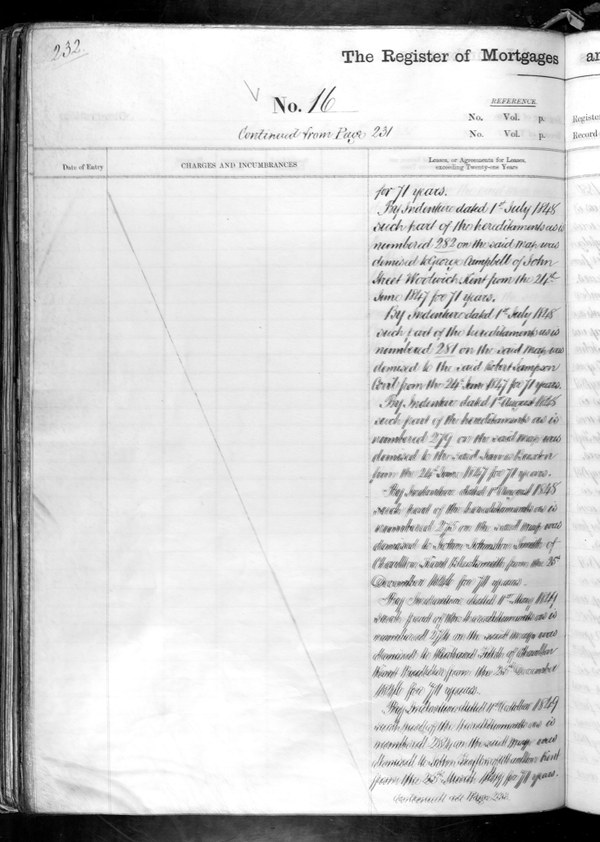 232.
The Register of Mortgages
an
No. 16
REFERENCE.
No. Vol. p.
Register
Continued from Page 231
No. Vol. p.
Record
Date of Entry
CHARGES AND INCUMBRANCES
Leases, or Agreements for Leases,
exceeding Twenty-one Years
for 71 years.
By Indenture dated 1st July 1848
such part of the hereditaments as is
numbered 282 on the said Map was
demised to George Campbell of John
Street Woolwich Kent from the 24th
June 1847 for 71 years.
By Indenture dated 1st July 1848
such part of the hereditaments as is
numbered 281 on the said Map was
demised to the said Robert Sampson
from the 24th June 1847 for 71 years.
By Indenture dated 1st August 1848
such part of the hereditaments as is
numbered 279 on the said Map was
demised to the said James
from the 24th June 1847 for 71 years.
By Indenture dated 1st August 1848
such part of the hereditaments as is
numbered 275 on the said Map was
demised to John Smith of
Charlton Kent from the 25th
December 1846 for 71 years.
By Indenture dated 1st May 1849
such part of the hereditaments as is
numbered 274 on the said Map was
demised to of Charlton
Kent from the 25th December
1846 for 71 years.
By Indenture dated 1st October 1849
such part of the hereditaments as is
numbered on the said Map was
demised to John of Charlton Kent
from the 25th March for 71 years.
Continued on Page 233.